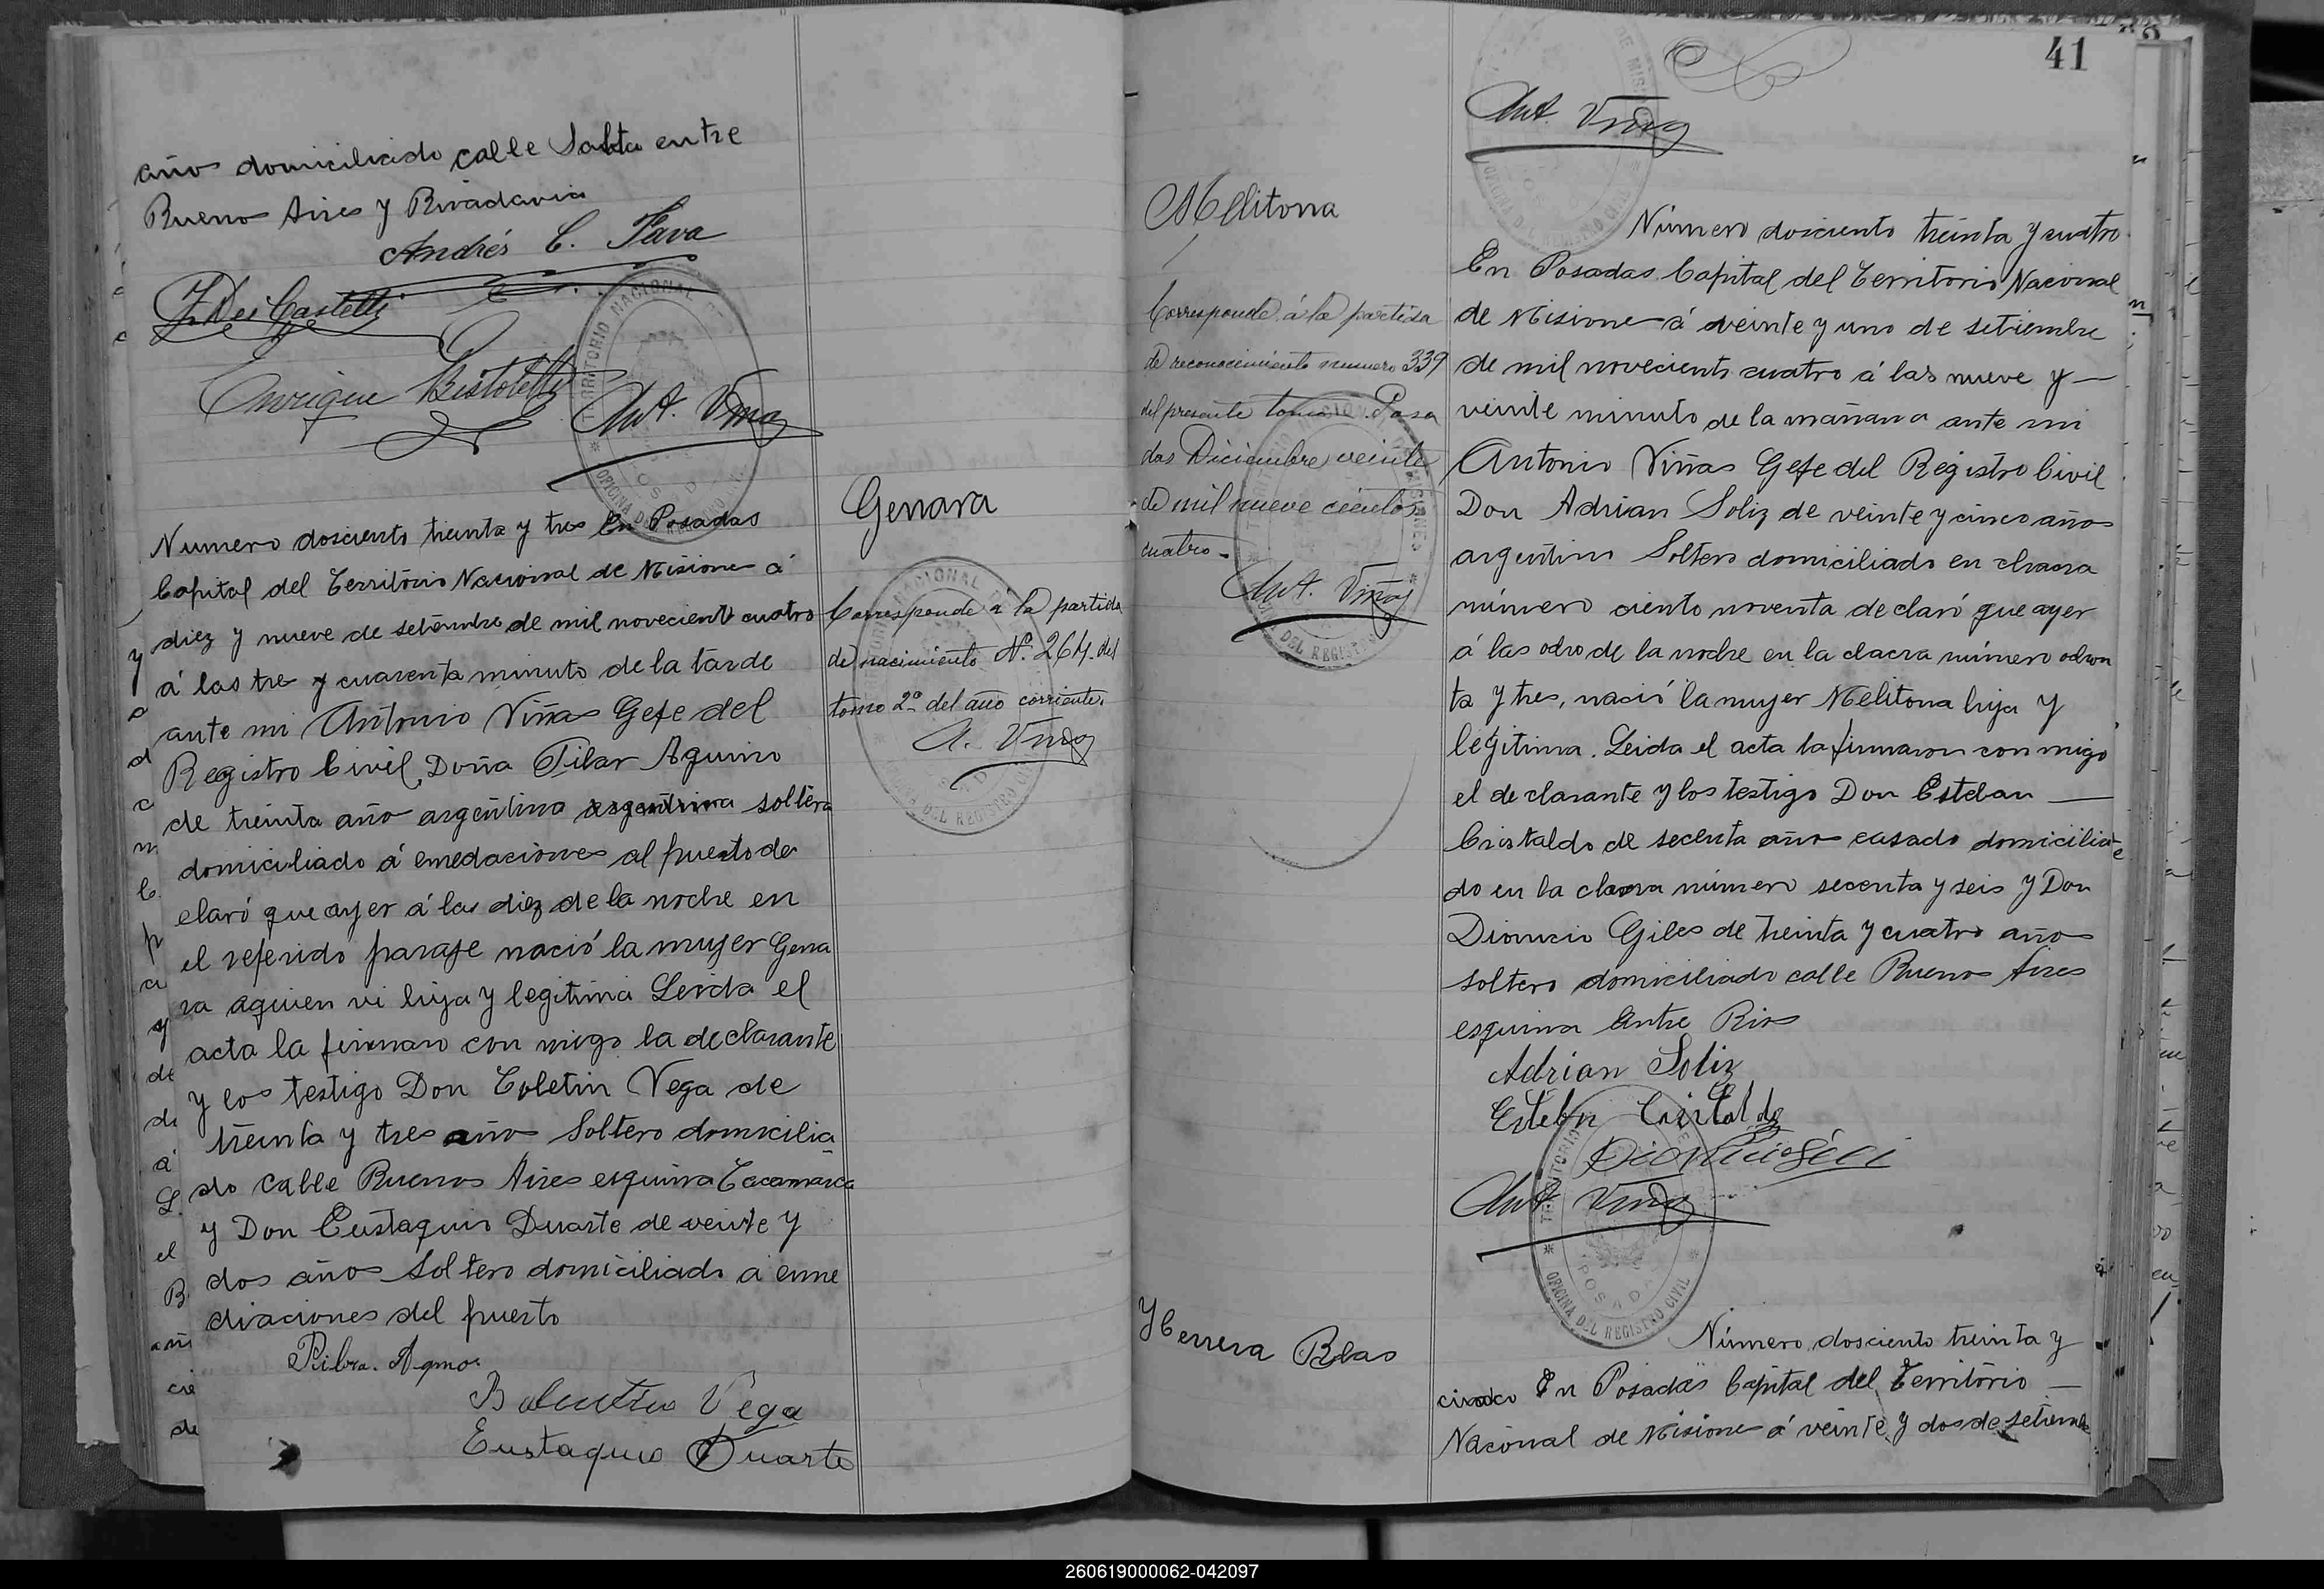 años domiciliado calle Salta entre
Buenos Aires y Rivadavia
Andrés C. Fava
Enrique Bistoletti
Ant. Viñas
Numero dosciento treinta y tres En Posadas
Capital del Territorio Nacional de Misione á
diez y nueve de setiembre de mil noveciento cuatro
á las tre y cuarenta minuto de la tarde
ante mi Antonio Viñas Gefe del
Registro Civil, Doña Pilar Aquino
de treinta año argentina argentina soltera
domiciliado á emedaciones al puerto de
claró que ayer á las diez de la noche en
el referido paraje nació la mujer Gena
ra aquien vi hija y legitima Leida el
acta la firmaro con migo la declarante
y los testigo Don Boletin Vega de
treinta y tres año Soltero domicilia
do calle Buenos Aires esquina Cacamarca
y Don Eustaquio Duarte de veinte y
dos años soltero domiciliado a enme
diaciones del puerto
Balentin Vega
Eustaquio Duarte
Genara
Corresponde á la partida
de nacimiento Nº. 264. del
tomo 2º del año corriente.
A. Viñas
41
Ant. Viñas
Melitona
Corresponde á la partida
de reconocimiento numero 339
del presente tomo. Posa
das Diciembre veinte
de mil nueve cientos
cuatro.
Ant. Viñas
Número dosciento treinta y cuatro
En Posadas Capital del Territorio Nacional
de Misione á veinte y uno de setiembre
de mil noveciento cuatro á las nueve y —
veinte minuto de la mañana ante mi
Antonio Viñas Gefe del Registro Civil
Don Adrian Soliz de veinte y cinco año
argentino Soltero domiciliado en chacra
número ciento noventa declaró que ayer
á las ocho de la noche en la chacra número ochen
ta y tres, nació la mujer Melitona hija y
legitima. Leida el acta la firmaron con migo
el declarante y los testigo Don Esteban —
Cristaldo de secenta año casado domicilia
do en la chacra número secenta y seis y Don
Dionicio Giles de treinta y cuatro año
soltero domiciliado calle Buenos Aires
esquina Entre Rios
Adrian Soliz
Esteban Cristaldo
Ant. Viñas
Herrera Blas
Número dosciento treinta y
cinco En Posadas Capital del Territorio —
Nacional de Misione á veinte y dos de setiembre
260619000062-042097